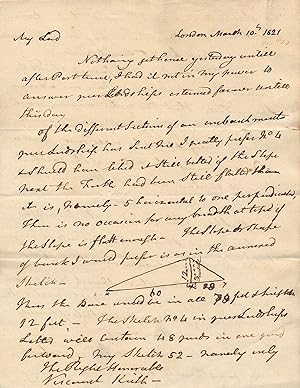 My Lord London March 10th 1821
Not having got home yesterday untill
after Post time, I had it not in my power to
answer your Lordships esteemed favour untill
this day
Of the different Sections of an embankment
your Lordship has sent me I greatly prefer No 4
& should have liked it still better if the Slope
next the had been still flatter than
it is, namely 5 horizontal to one perpendicular
There is no occasion for any breadth at top if
the Slope is flat enough — The Slope & shape
of bank I would prefer is as in the annexed
Sketch —
12
60 20
Thus the Base would be in all feet & height
12 feet — The Sketch No 4 in your Lordships
Letter will contain 48 yards in one yard
forward, my Sketch 52 — namely only
The Right Honorable
Viscount Keith —